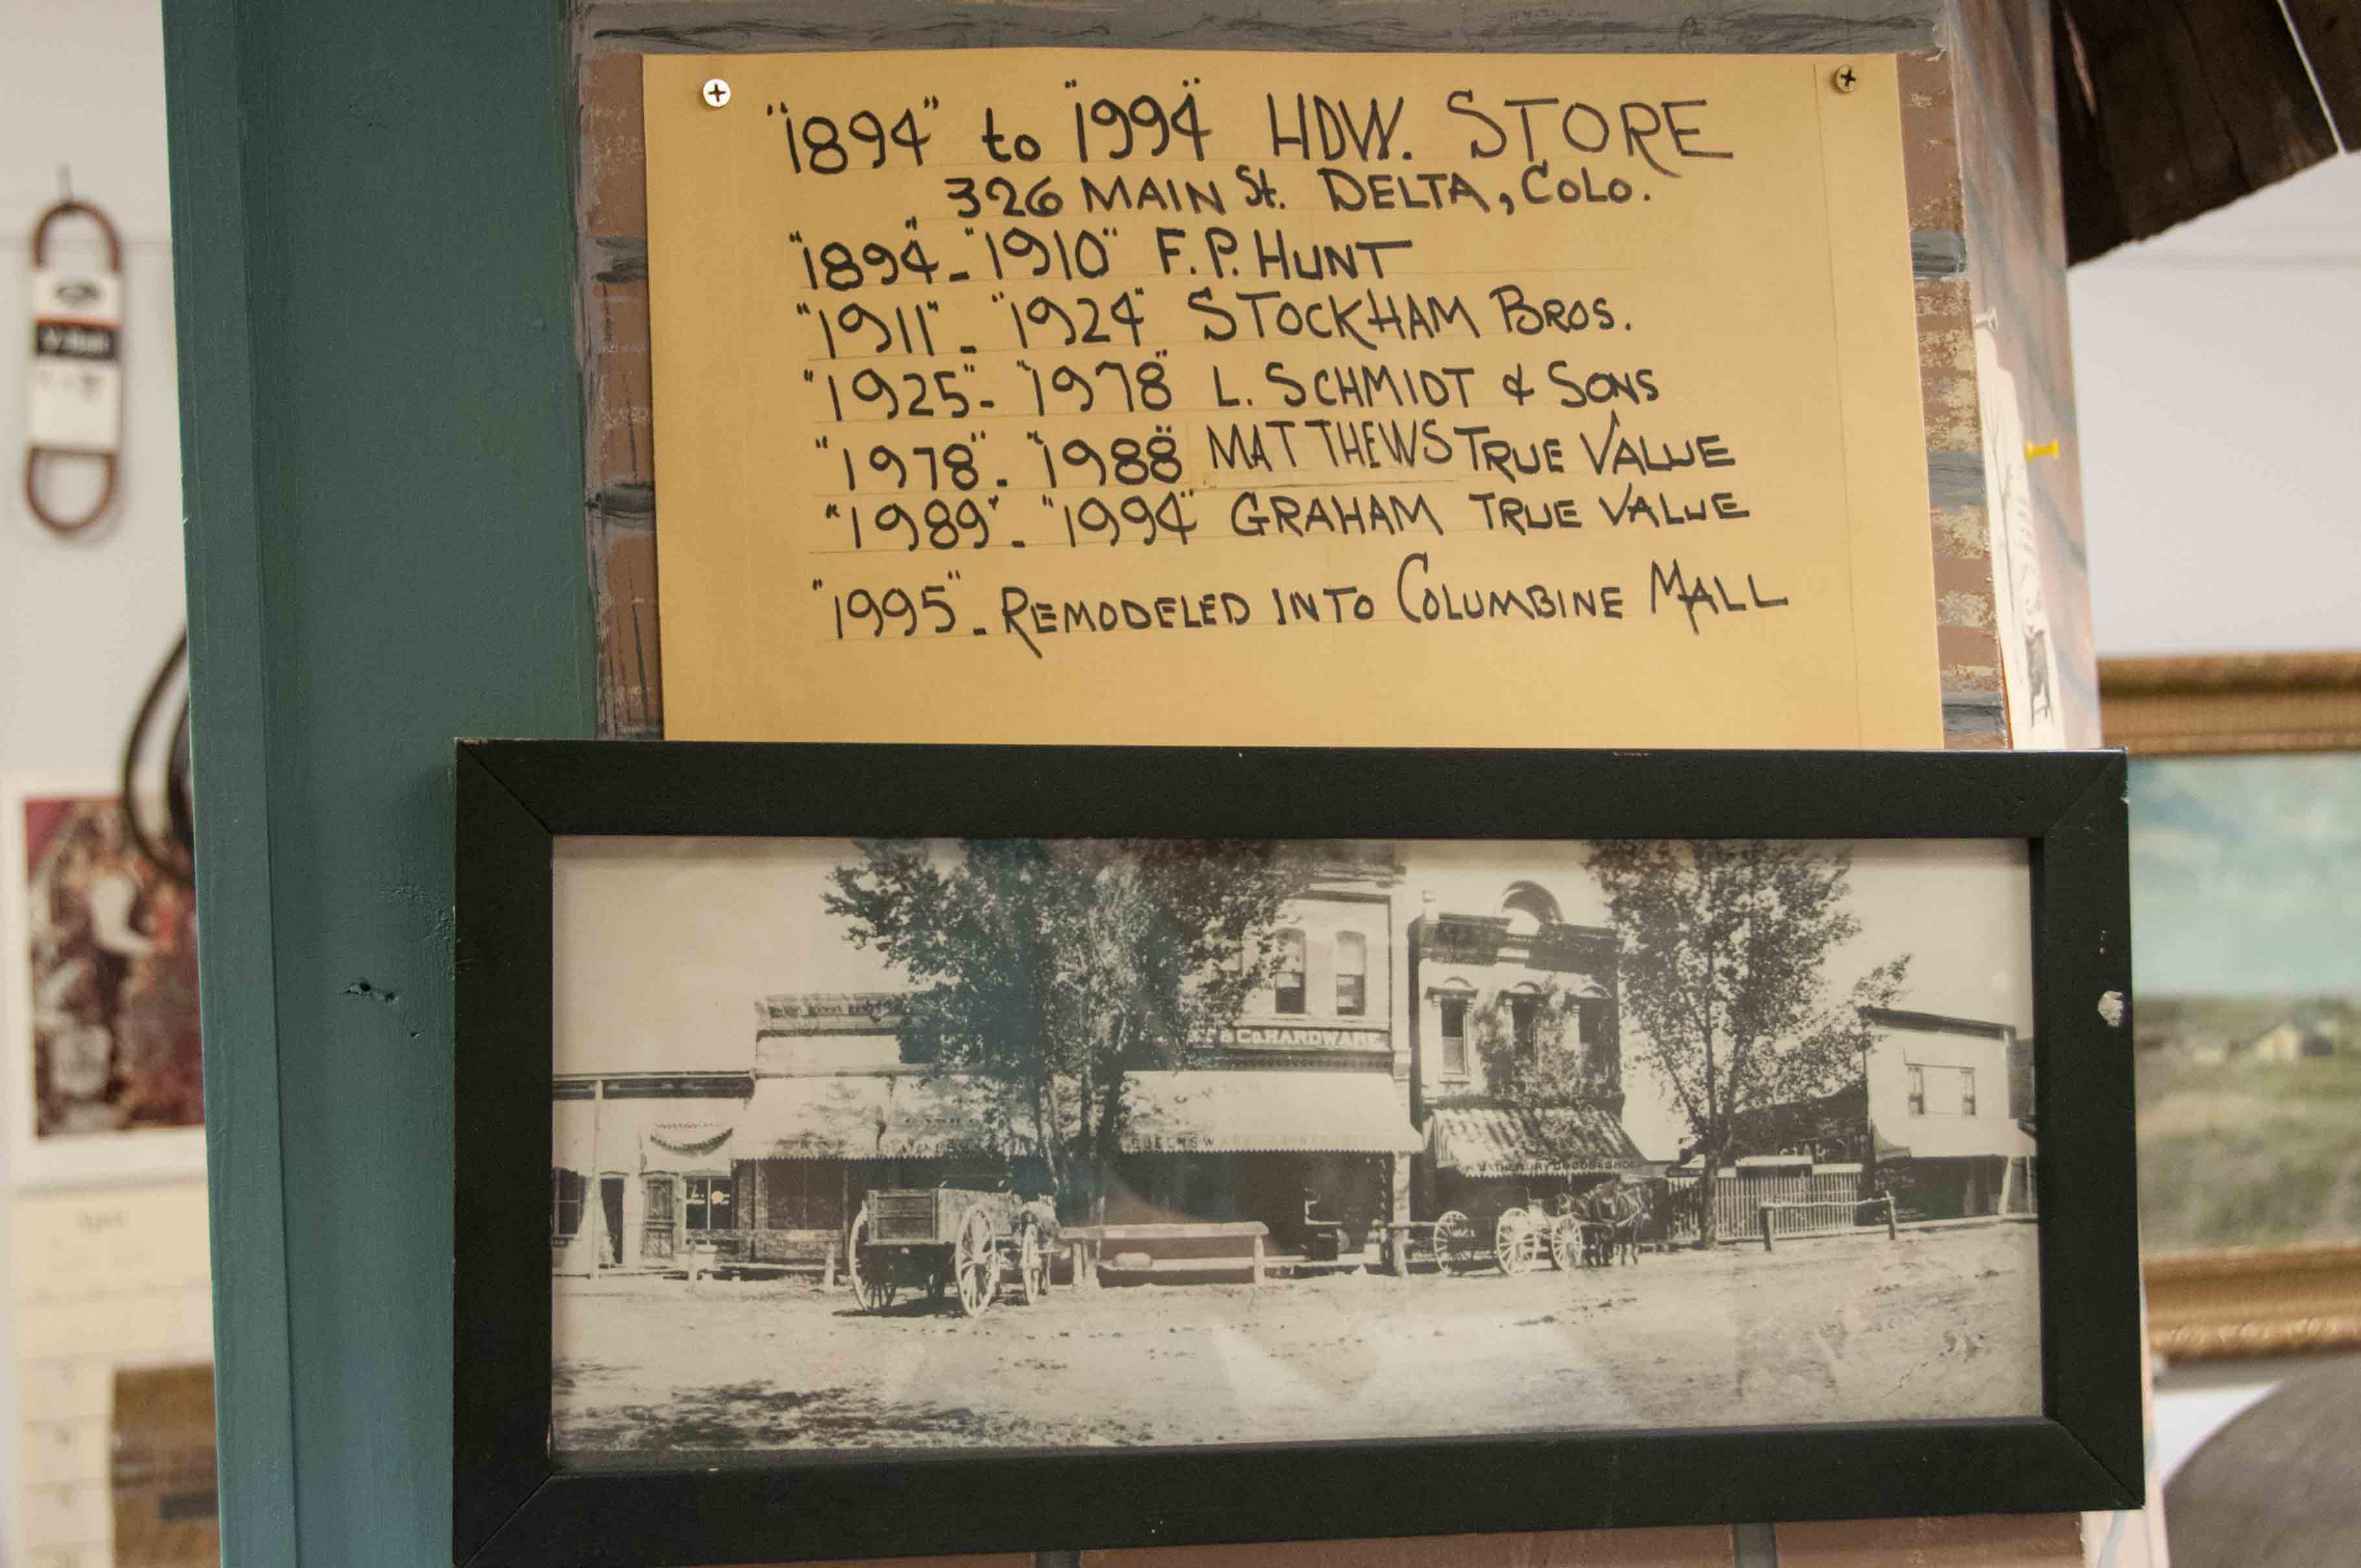 "1894" to "1994" HDW. STORE
326 MAIN St. DELTA, COLO.
"1894"-"1910" F.P. HUNT
"1911"-"1924" STOCKHAM BROS.
"1925"-"1978" L. SCHMIDT & SONS
"1978"-"1988" MATTHEWS TRUE VALUE
"1989"-"1994" GRAHAM TRUE VALUE
"1995"-REMODELED INTO COLUMBINE MALL
& CO. HARDWARE.
QUEENSWARE
DRY GOODS & SHOE
April